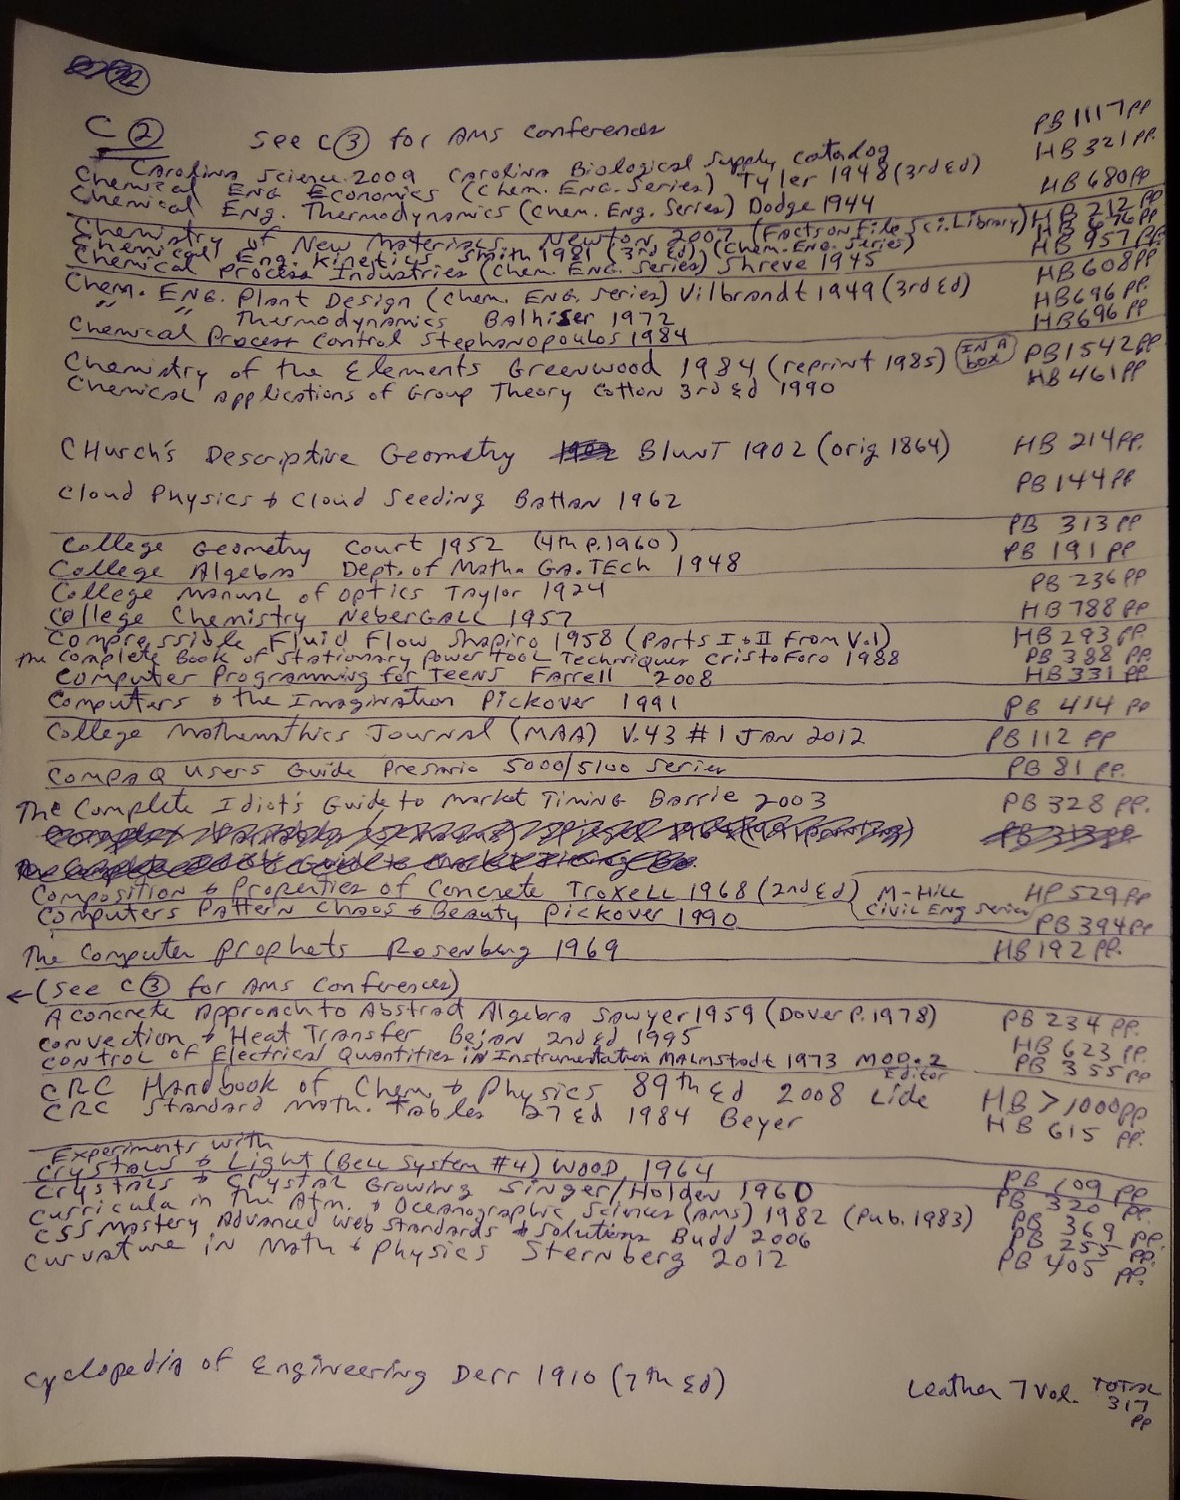 C ② See C③ for AMS Conferences
Carolina Science 2009 Carolina Biological Supply Catalog PB 1117 pp
Chemical ENG Economics (Chem. ENG. Series) Tyler 1948 (3rd Ed) HB 321 pp.
Chemical Eng. Thermodynamics (Chem. Eng. Series) Dodge 1944 HB 680 pp
Chemistry of New Materials Newton 2007 (Facts on File Sci. Library) HB 212 pp
Chemical Eng. Kinetics Smith 1981 (3rd Ed) (Chem. Eng. Series) HB 676 pp
Chemical Process Industries (Chem. ENG. Series) Shreve 1945 HB 957 pp
Chem. ENG. Plant Design (Chem. ENG. Series) Vilbrandt 1949 (3rd Ed) HB 608 pp
" " Thermodynamics Balhiser 1972 HB 696 pp.
Chemical Process Control Stephanopoulos 1984 HB 696 pp
Chemistry of the Elements Greenwood 1984 (reprint 1985) IN A box PB 1542 pp
Chemical Applications of Group Theory Cotton 3rd Ed 1990 HB 461 pp
CHurch's Descriptive Geometry Blunt 1902 (orig 1864) HB 214 pp.
Cloud Physics + Cloud Seeding Battan 1962 PB 144 pp
College Geometry Court 1952 (4th p. 1960) PB 313 pp
College Algebra Dept. of Math. GA. TEch 1948 PB 191 pp
College Manual of Optics Taylor 1924 PB 236 pp
College Chemistry NeberGALL 1957 HB 788 pp
Compressible Fluid Flow Shapiro 1958 (Parts I + II From V.1) HB 293 pp.
The Complete Book of Stationary Power Tool Techniques Cristoforo 1988 PB 388 pp.
Computer Programming for Teens Farrell 2008 HB 331 pp
Computers + the Imagination Pickover 1991 PB 414 pp
College Mathemathics Journal (MAA) V.43 #1 JAN 2012 PB 112 pp
COMPAQ Users Guide Presario 5000/5100 Series PB 81 pp.
The Complete Idiot's Guide to Market Timing Barrie 2003 PB 328 pp.
Composition + Properties of Concrete Troxell 1968 (2nd Ed) M-Hill Civil Eng Series HP 529 pp
Computers Pattern Chaos + Beauty Pickover 1990 PB 394 pp
The Computer Prophets Rosenberg 1969 HB 192 pp.
← (See C③ for AMS Conferences)
A Concrete Approach to Abstract Algebra Sawyer 1959 (Dover P. 1978) PB 234 pp.
Convection + Heat Transfer Bejan 2nd Ed 1995 HB 623 pp.
Control of Electrical Quantities in Instrumentation Malmstadt 1973 MOD. 2 PB 355 pp
CRC Handbook of Chem. + Physics 89th Ed 2008 Lide Editor HB > 1000 pp
CRC Standard Math. Tables 27 Ed 1984 Beyer HB 615 pp.
Experiments with
Crystals + Light (Bell System #4) Wood 1964 PB 109 pp
Crystals + Crystal Growing Singer/Holden 1960 PB 320 pp.
Curricula in the Atm. + Oceanographic Sciences (AMS) 1982 (Pub. 1983) PB 369 pp.
CSS Mastery Advanced Web Standards + Solutions Budd 2006 PB 255 pp.
Curvature in Math + Physics Sternberg 2012 PB 405 pp.
Cyclopedia of Engineering Derr 1910 (7th Ed) Leather 7 Vol. TOTAL
317
pp